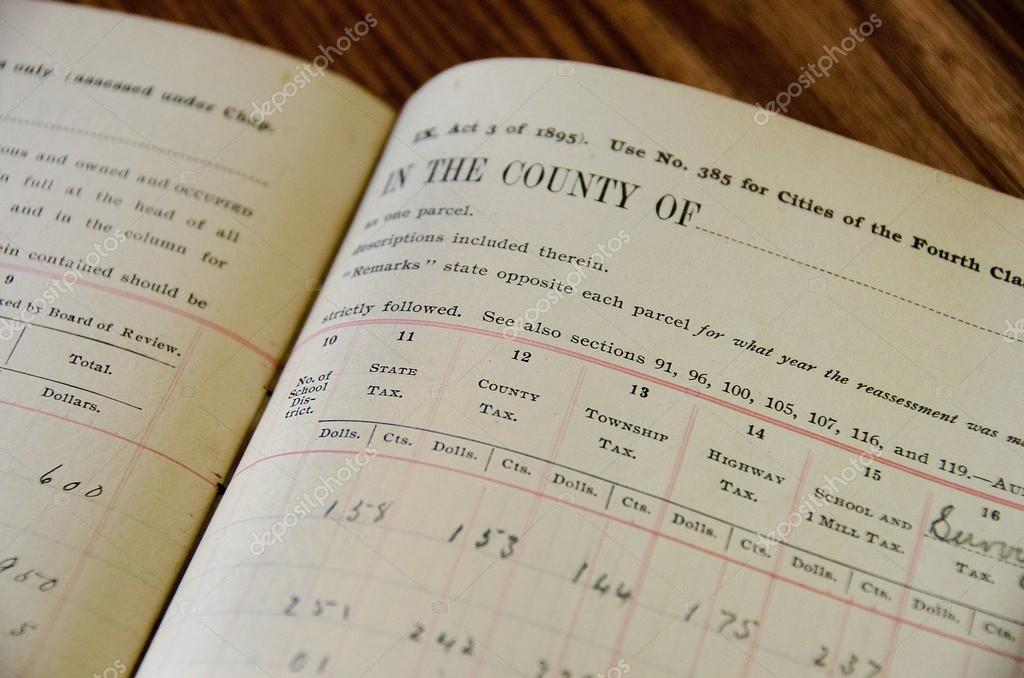 s only (assessed under Chap.
ous and owned and OCCUPIED
n full at the head of all
and in the column for
ein contained should be
9
xed by Board of Review.
Total.
Dollars.
600
950
5
IX, Act 3 of 1895). Use No. 385 for Cities of the Fourth Cla
IN THE COUNTY OF
as one parcel.
descriptions included therein.
"Remarks" state opposite each parcel for what year the reassessment was m
strictly followed. See also sections 91, 96, 100, 105, 107, 116, and 119.—Au
10 11 12 13 14 15 16
No. of
School
Dis-
trict.
STATE
TAX.
COUNTY
TAX.
TOWNSHIP
TAX.
HIGHWAY
TAX.
SCHOOL AND
1 MILL TAX.
TAX.
Dolls. Cts. Dolls. Cts. Dolls. Cts. Dolls. Cts. Dolls. Cts. Dolls. Cts.
158 153 144 175 237
251 242
01
depositphotos
depositphotos
depositphotos
depositphotos
depositphotos
depositphotos
depositphotos
depositphotos